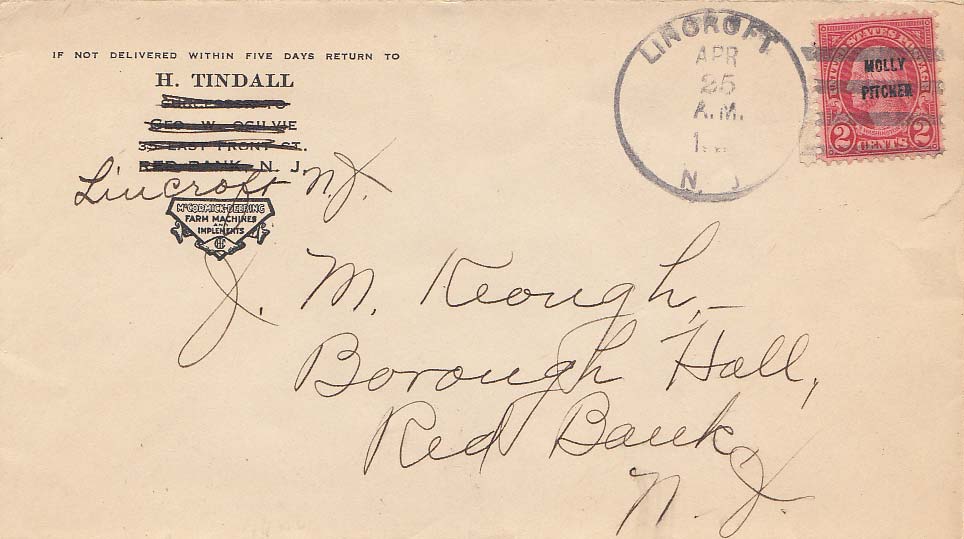 IF NOT DELIVERED WITHIN FIVE DAYS RETURN TO
H. TINDALL
SUCCESSOR TO
GEO. W. OGILVIE
EAST FRONT ST.
RED BANK, N. J.
Lincroft N.J.
McCORMICK-DEERING
FARM MACHINES
AND
IMPLEMENTS
LINCROFT
APR
25
A.M.
N. J.
UNITED STATES POSTAGE
MOLLY
PITCHER
WASHINGTON
2 CENTS 2
J. M. Keough,
Borough Hall,
Red Bank
N. J.